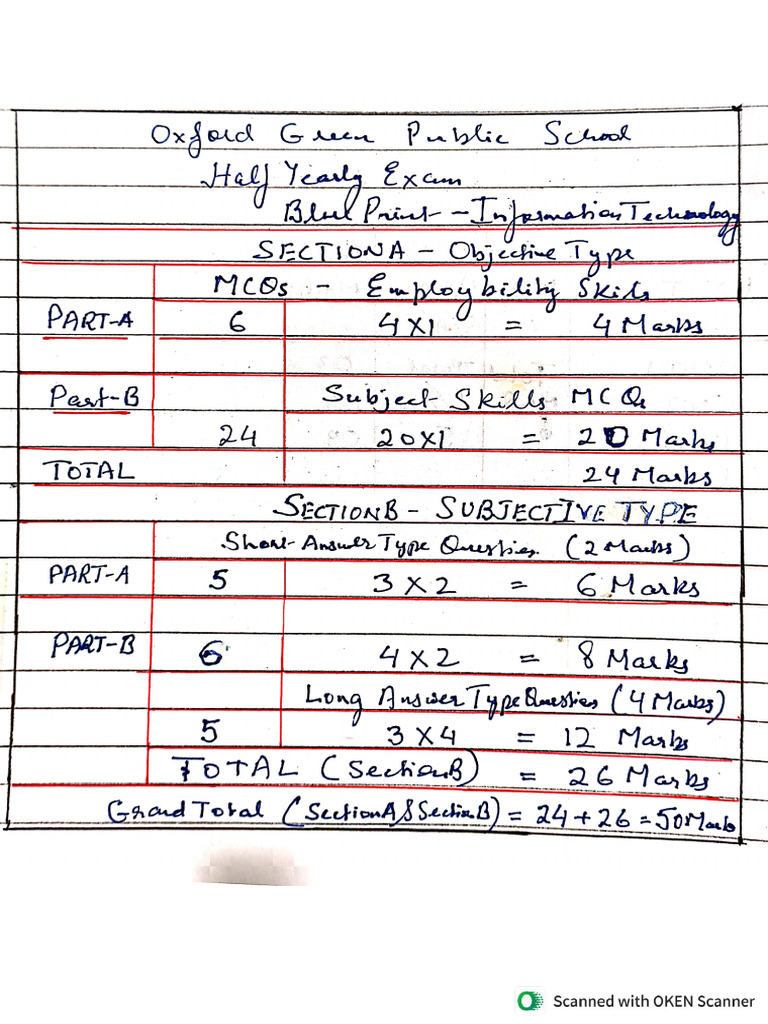 Oxford Green Public School
Half Yearly Exam
Blue Print - Information Technology
SECTION A - Objective Type
MCQs - Employbility Skills
PART-A 6 4X1 = 4 Marks
Part-B Subject Skills MCQs
24 20X1 = 20 Marks
TOTAL 24 Marks
SECTION B - SUBJECTIVE TYPE
Short Answer Type Questies (2 Marks)
PART-A 5 3 X 2 = 6 Marks
PART-B 6 4 X 2 = 8 Marks
Long Answer Type Questies (4 Marks)
5 3 X 4 = 12 Marks
TOTAL (Section B) = 26 Marks
Grand Total (Section A & Section B) = 24 + 26 = 50 Marks
Scanned with OKEN Scanner